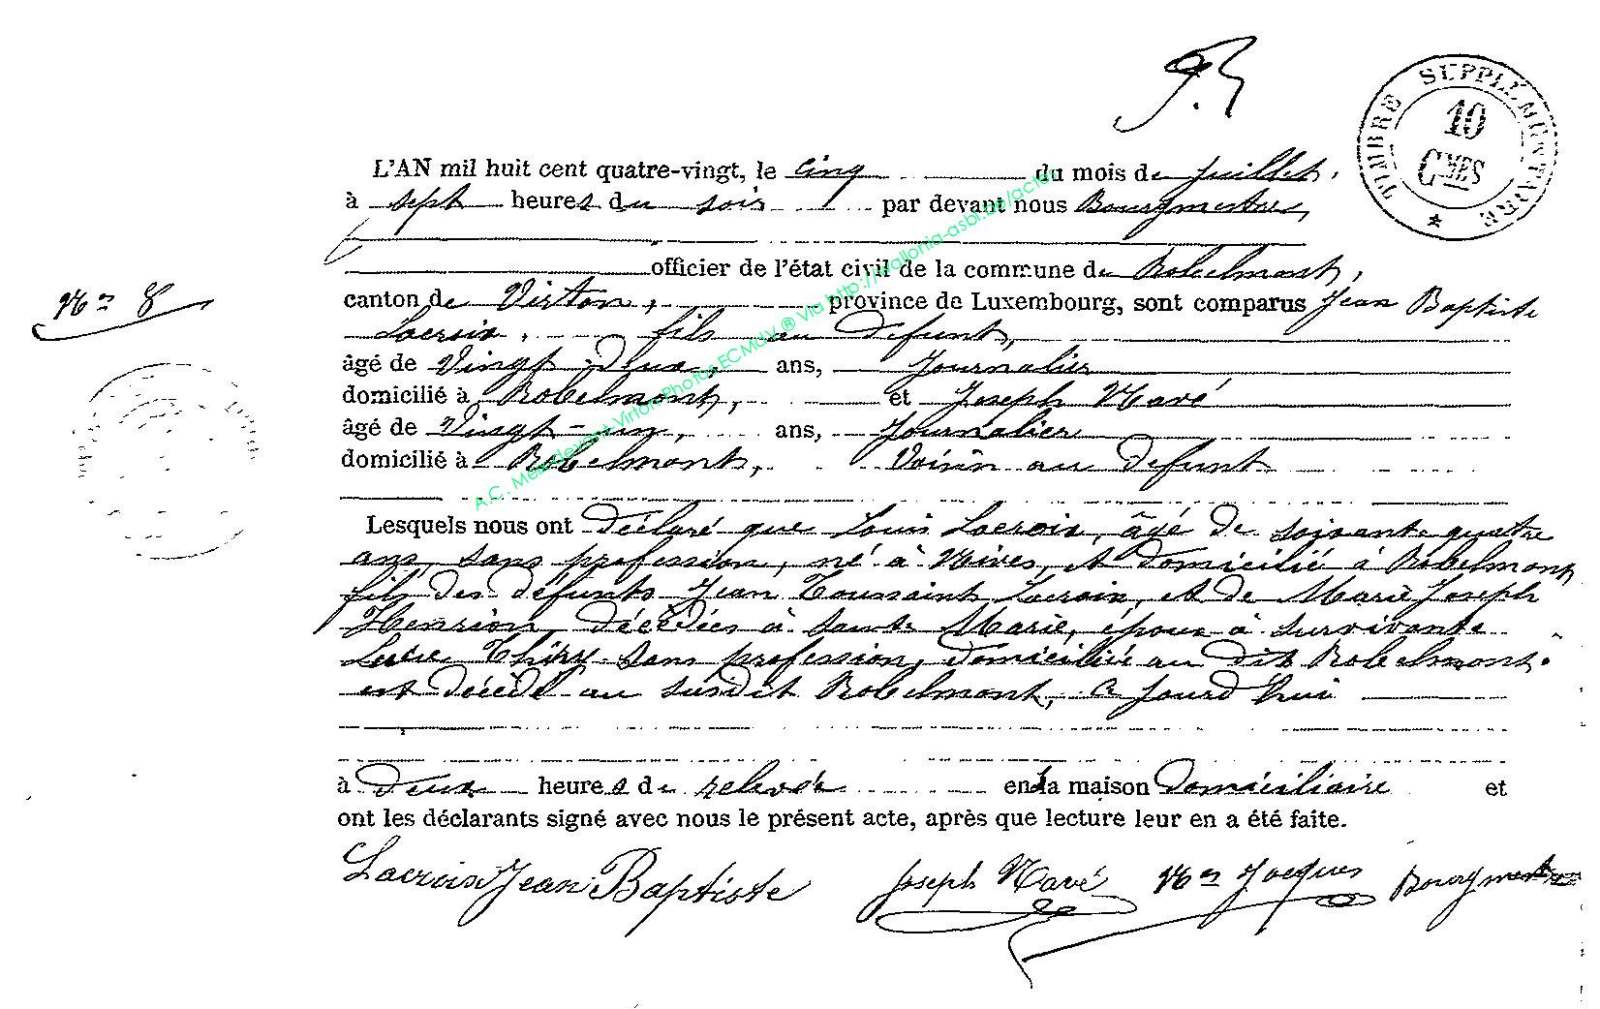 TIMBRE SUPPLÉMENTAIRE
10
CMES
L'AN mil huit cent quatre-vingt, le cinq du mois de juillet,
à sept heures du soir par devant nous Bourgmestre,
officier de l'état civil de la commune de Robelmont,
N° 8
canton de Virton, province de Luxembourg, sont comparus Jean Baptiste
Lacroix, fils au defunt,
âgé de Vingt-deux, ans, Journalier
domicilié à Robelmont, et Joseph Navé
âgé de Vingt-un, ans, Journalier
domicilié à Robelmont, Voisin au defunt
Lesquels nous ont déclaré que Louis Lacroix, âgé de soixante quatre
ans, sans profession, né à et domicilié à Robelmont
fils des défunts Jean Toussaint Lacroix, et de Marie Joseph
Henrion, décédés à Sainte Marie, époux à survivante
Thiry sans profession, domiciliée au dit Robelmont.
est décédé au susdit Robelmont, jourd'hui
à deux heures de relevée en la maison domiciliaire et
ont les déclarants signé avec nous le présent acte, après que lecture leur en a été faite.
Lacroix Jean Baptiste Joseph Navé Jacques Bourgmestre
A.C. Meix-devant-Virton Photos ECMUV ® Via http://wallonia-asbl.be/acte/